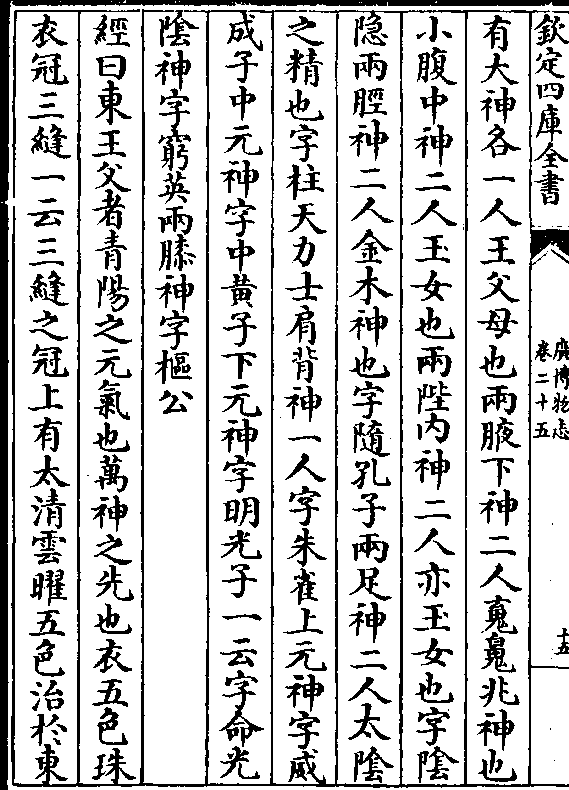 欽定四庫全書
廣博物志
卷二十五
十五
有大神各一人王父母也兩腋下神二人䰟鬿兆神也
小腹中神二人玉女也兩陛内神二人亦玉女也字陰
隐兩脛神二人金木神也字隨孔子兩足神二人太陰
之精也字柱天力士肩背神一人字朱雀上元神字威
成子中元神字中黄子下元神字明光子一云字命光
陰神字窮英兩膝神字樞公
經曰東王父者青陽之元氣也萬神之先也衣五色珠
衣冠三縫一云三縫之冠上有太清雲曜五色治於東